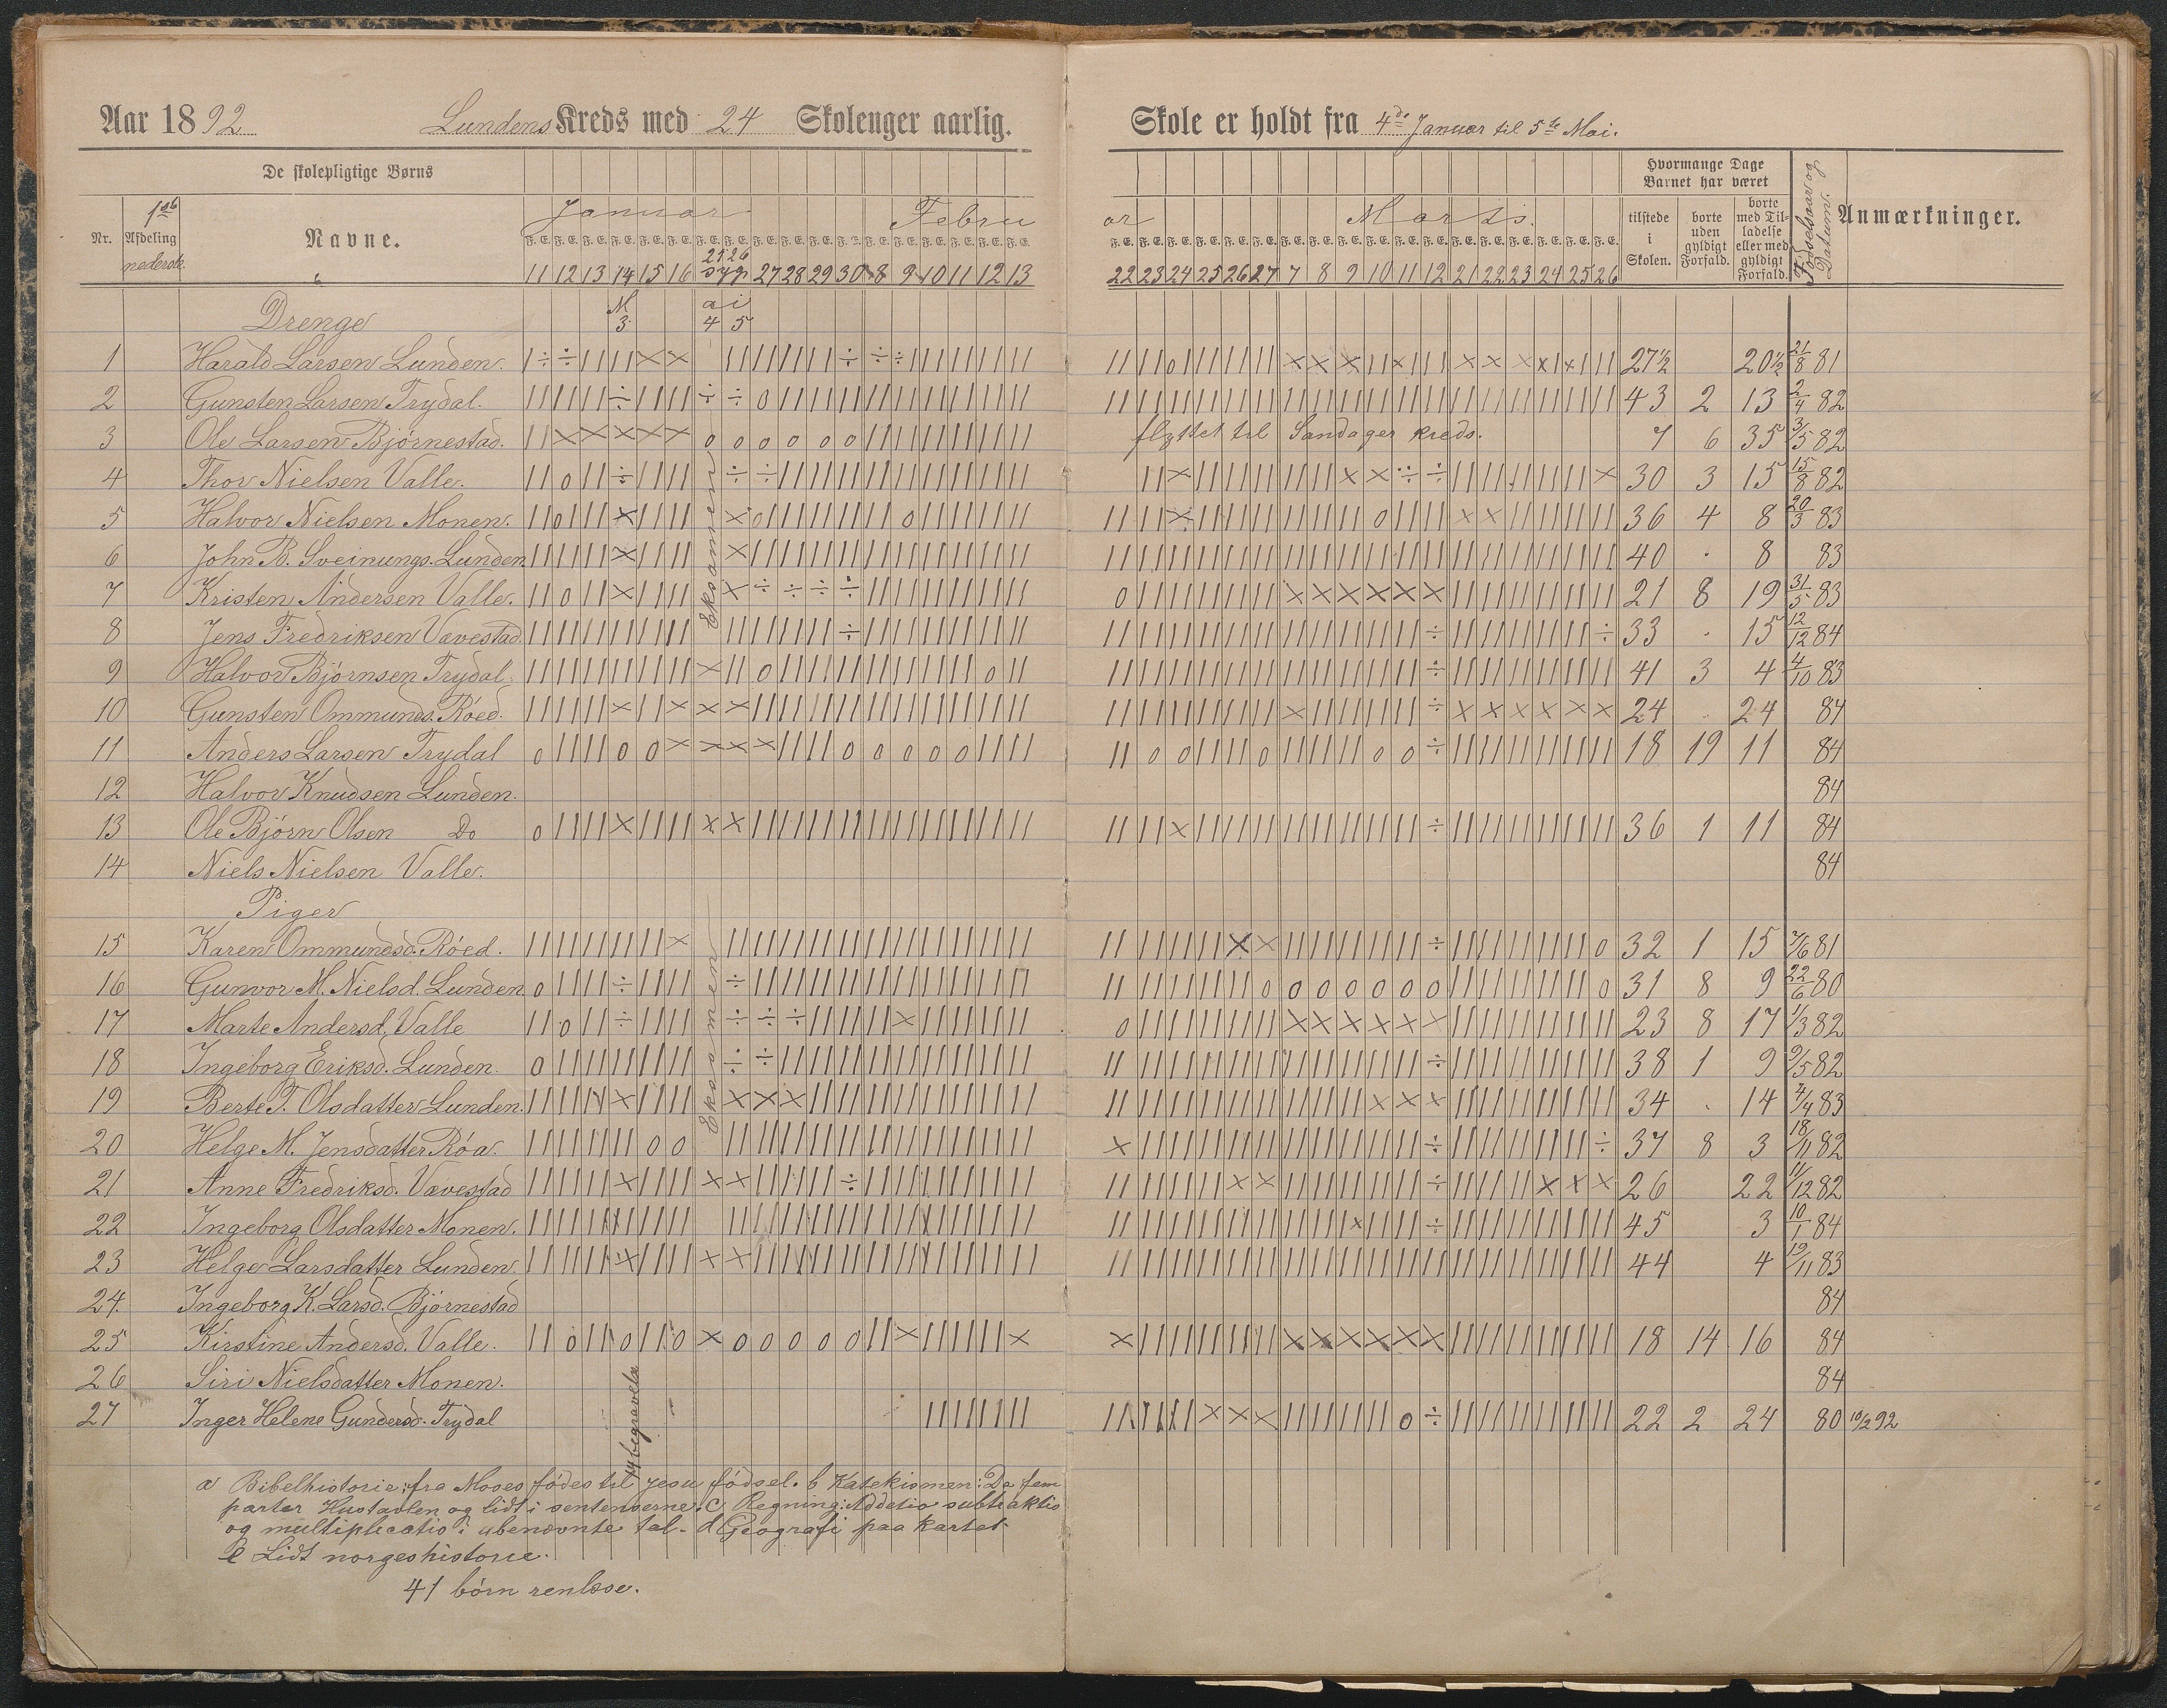 Aar 1892 Lundens Kreds med 24 Skoleuger aarlig.
Skole er holdt fra 4de Januar til 5te Mai.
De skolepligtige Børns
Hvormange Dage Barnet har været
Nr. 1ste Afdeling nederste Navne. Januar Febru
ar Marts. tilstede i Skolen. borte uden gyldigt Forfald. borte med Tilladelse eller med gyldigt Forfald. Fødselsaar og Datum. Anmærkninger.
11 12 13 14 15 16 25 26 syg 27 28 29 30 8 9 10 11 12 13
22 23 24 25 26 27 7 8 9 10 11 12 21 22 23 24 25 26
Drenge M 3 ai 4 5
1 Harald Larsen Lunden. 27½ 20½ 21/8 81
2 Gunsten Larsen Trydal. 43 2 13 2/4 82
3 Ole Larsen Bjørnestad. flyttet til Sandager kreds. 7 6 35 3/5 82
4 Thov Nielsen Valle. 30 3 15 15/8 82
5 Halvor Nielsen Monen. 36 4 8 20/3 83
6 John B. Sveinungs. Lunden 40 . 8 83
7 Kristen Andersen Valle. 21 8 19 31/5 83
8 Jens Fredriksen Vævestad. 33 . 15 12/12 84
9 Halvor Bjørnsen Trydal. 41 3 4 4/10 83
10 Gunsten Ommunds. Røed. 24 . 24 84
11 Anders Larsen Trydal 18 19 11 84
12 Halvor Knudsen Lunden. 84
13 Ole Bjørn Olsen Do 36 1 11 84
14 Niels Nielsen Valle. 84
Eksamen
Piger
15 Karen Ommundsd. Røed. 32 1 15 7/6 81
16 Gunvor M. Nielsd. Lunden. 31 8 9 22/6 80
17 Marte Andersd. Valle 23 8 17 1/3 82
18 Ingeborg Eriksd. Lunden. 38 1 9 9/5 82
19 Berte T. Olsdatter Lunden. 34 . 14 4/4 83
20 Helge M. Jensdatter Røa. 37 8 3 18/11 82
21 Anne Fredriksd. Vævestad 26 22 11/12 82
22 Ingeborg Olsdatter Monen. 45 3 10/1 84
23 Helge Larsdatter Lunden. 44 4 19/11 83
24. Ingeborg K. Larsd. Bjørnestad 84
25 Kirstine Andersd. Valle. 18 14 16 84
26 Siri Nielsdatter Monen. 84
27 Inger Helene Gundersd. Trydal 22 2 24 80 10/2 92
Eksamen
begravels
a Bibelhistorie: fra Moses fødes til Jesu fødsel. b Katekismen: De fem
parter Hustavlen og lidt i sentenserne. c Regning: Addetio subtraktio
og multiplecatio i ubenævnte tal. d Geografi paa kartet
e Lidt norgeshistorie.
41 børn renlæse.